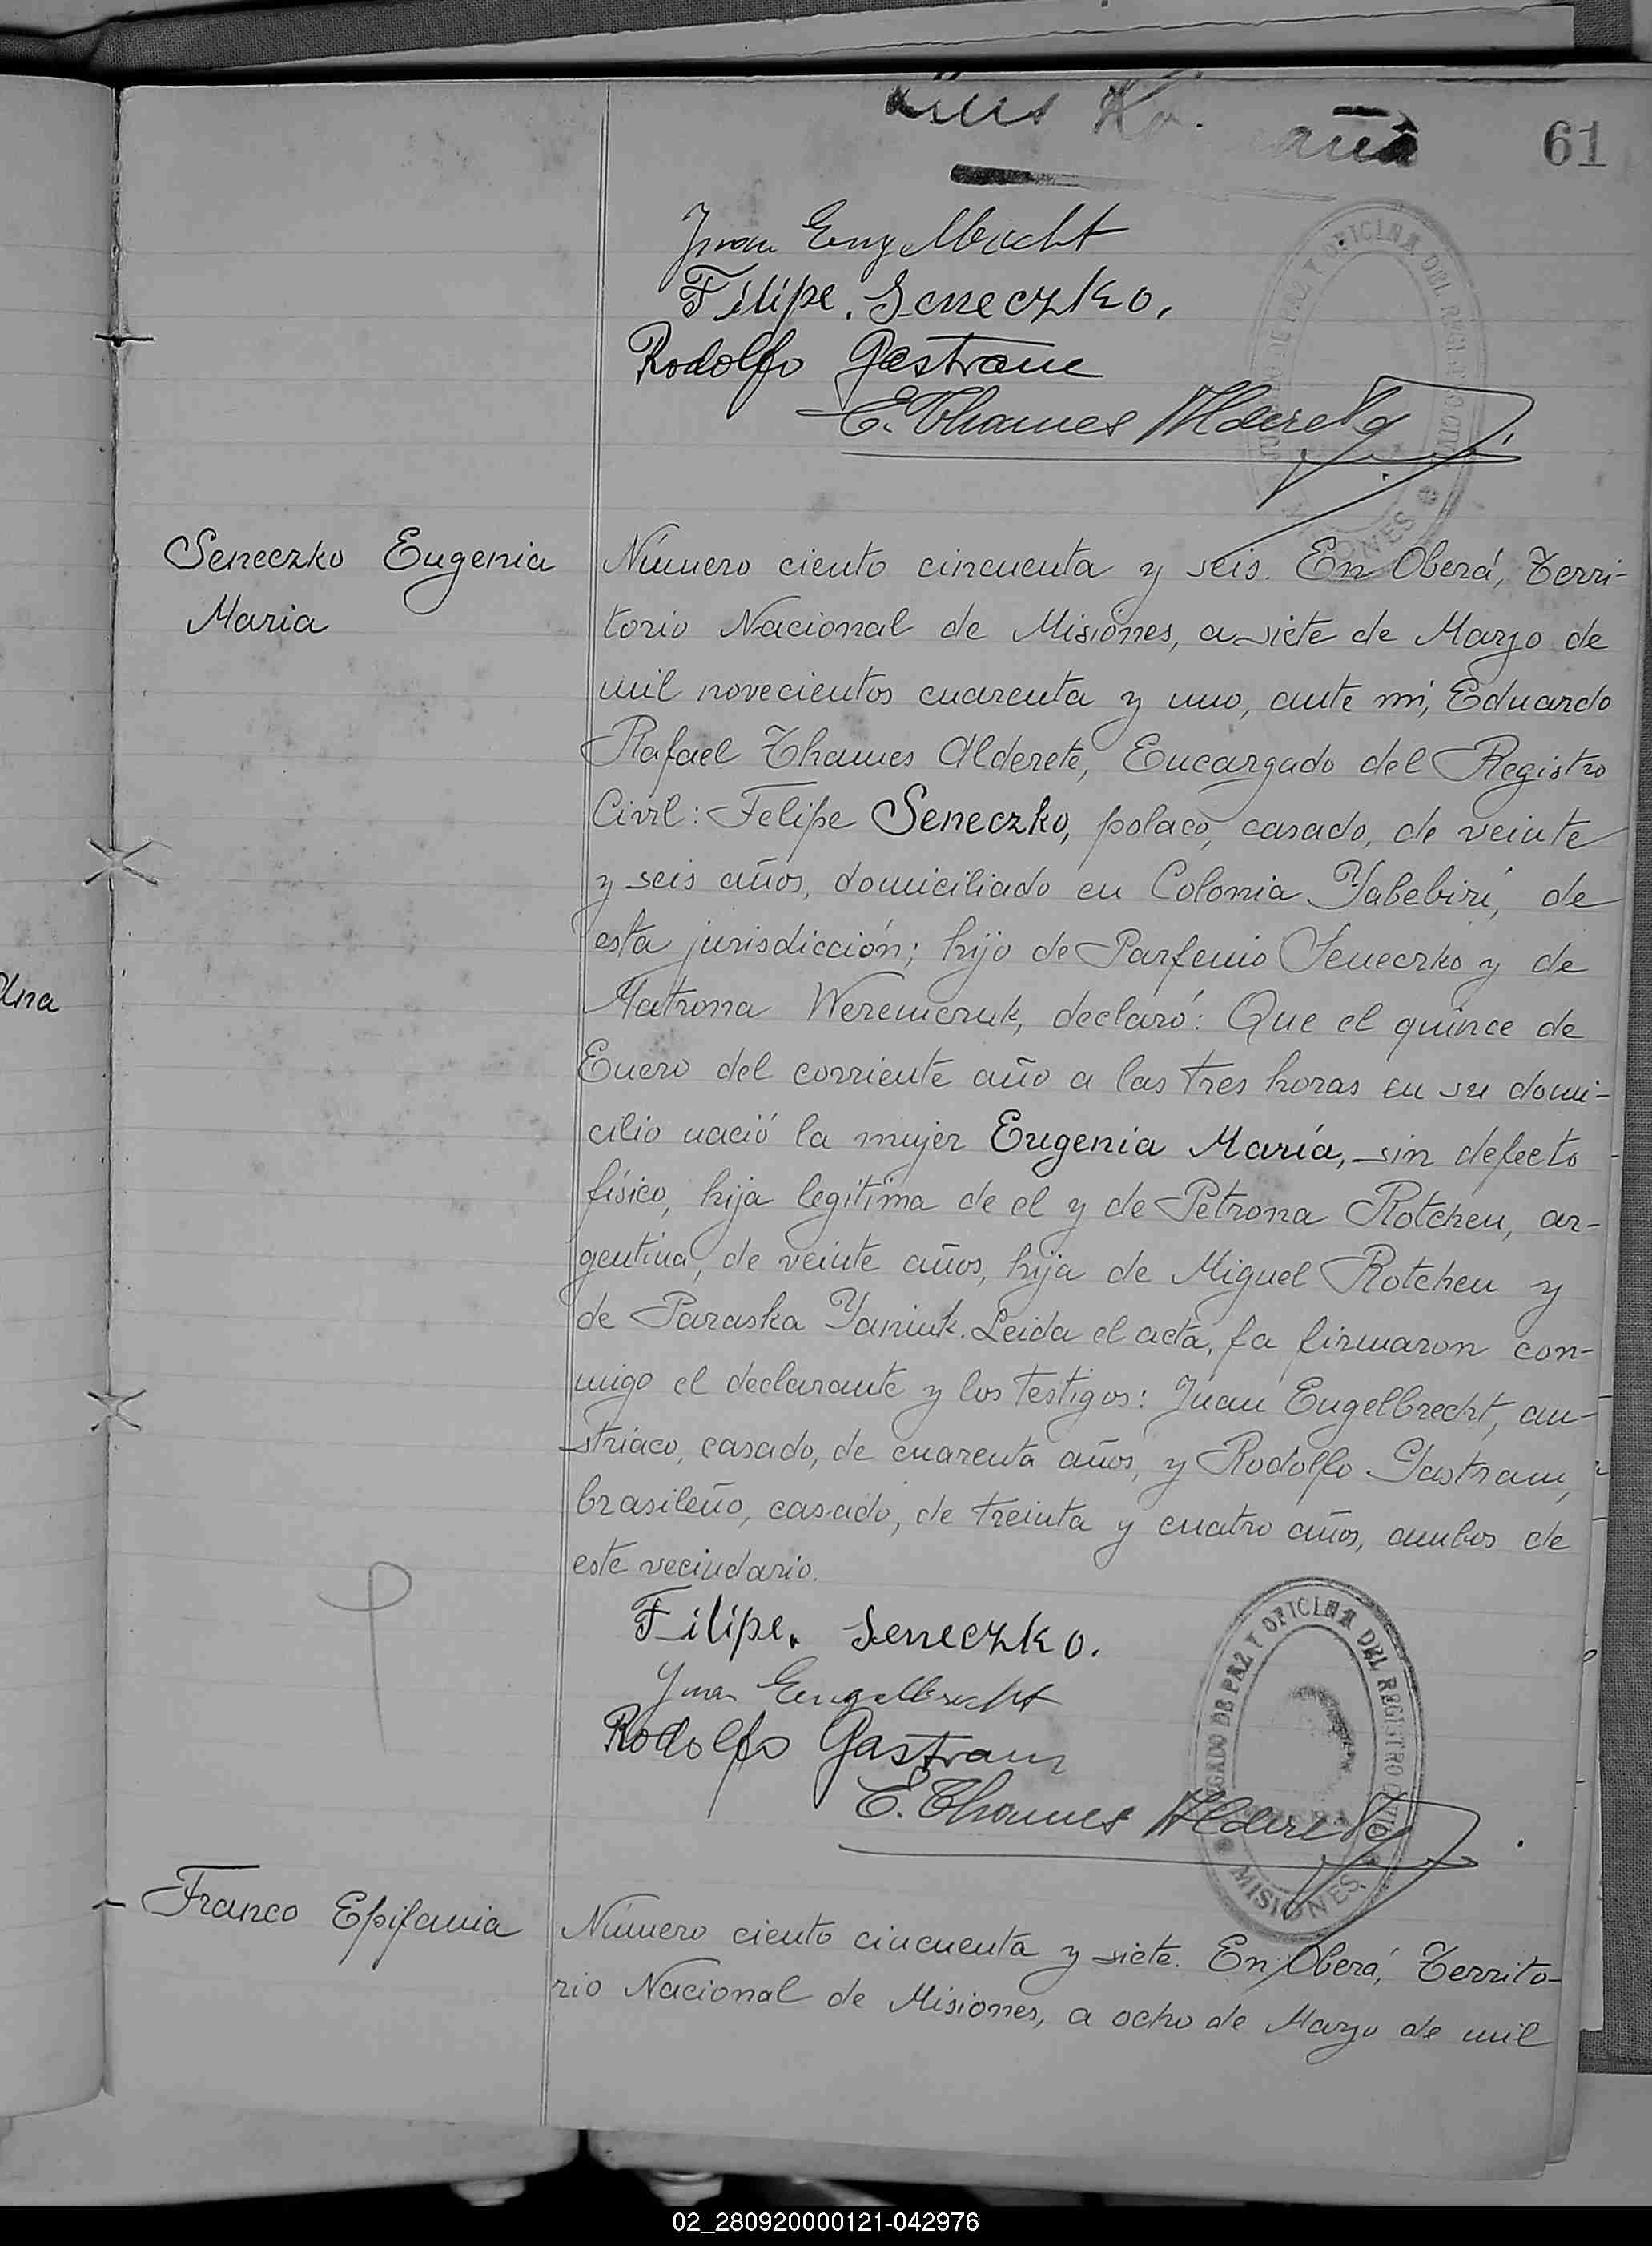 61
Juan Engelbrecht
Filipe. Seneczko.
Rodolfo Gastram
E. Thames Alderete
JUZGADO DE PAZ Y OFICINA DEL REGISTRO CIVIL
MISIONES
Seneczko Eugenia
Maria
Número ciento cincuenta y seis. En Oberá, Terri-
torio Nacional de Misiones, a siete de Marzo de
mil novecientos cuarenta y uno, ante mí, Eduardo
Rafael Thames Alderete, Encargado del Registro
Civil: Felipe Seneczko, polaco, casado, de veinte
y seis años, domiciliado en Colonia Yabebirí, de
esta jurisdicción; hijo de Parfenio Seneczko y de
Matrona Weremczuk, declaró: Que el quince de
Enero del corriente año a las tres horas en su domi-
cilio nació la mujer Eugenia María, sin defecto
físico, hija legítima de el y de Petrona Rotchen, ar-
gentina, de veinte años, hija de Miguel Rotchen y
de Paraska Yaniuk. Leida el acta, la firmaron con-
migo el declarante y los testigos: Juan Engelbrecht, au-
striaco, casado, de cuarenta años, y Rodolfo Gastram,
brasileño, casado, de treinta y cuatro años, ambos de
este vecindario.
Filipe. Seneczko.
Juan Engelbrecht
Rodolfo Gastram
E. Thames Alderete
JUZGADO DE PAZ Y OFICINA DEL REGISTRO CIVIL
MISIONES
Franco Epifania
Número ciento cincuenta y siete. En Oberá, Territo-
rio Nacional de Misiones, a ocho de Marzo de mil
02_280920000121-042976